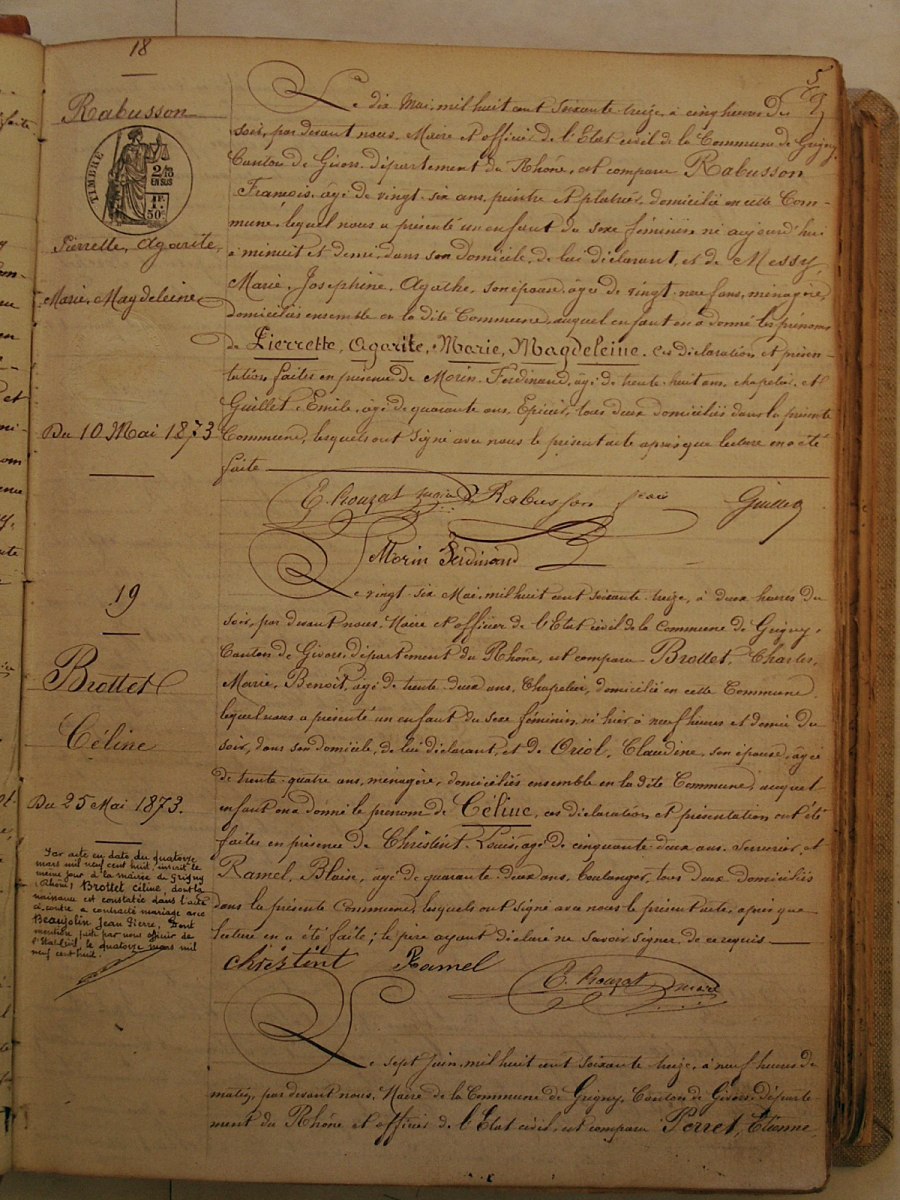 18
5
Rabusson
TIMBRE
2/10
EN SUS
1F
50c
Pierrette, Agarite,
Marie, Magdeleine
Du 10 Mai 1873
Le dix Mai, mil huit cent soixante treize, à cinq heures du
soir, par devant nous, Maire et officier de l'Etat civil de la Commune de Grigny,
Canton de Givors, département du Rhône, est comparu Rabusson
François, âgé de vingt-six ans, peintre et plâtrier, domicilié en cette Com-
mune, lequel nous a présenté un enfant du sexe féminin né aujourd'hui
à minuit et demie, dans son domicile, de lui déclarant, et de Messy,
Marie, Joséphine, Agathe, son épouse, âgée de vingt-neuf ans, ménagère,
domiciliés ensemble en la dite Commune, auquel enfant on a donné les prénoms
de Pierrette, Agarite, Marie, Magdeleine. Ces déclaration et présen-
tation faites en présence de Morin, Ferdinand, âgé de trente huit ans, chapelier, et
Guillet, Emile, âgé de quarante ans, Epicier, tous deux domiciliés dans la présente
Commune, lesquels ont signé avec nous le présent acte après que lecture en a été
faite
E. Rouzat maire Rabusson Guillet
Morin Ferdinand
19
Brottet
Céline
Du 25 Mai 1873.
Par acte en date du quatorze
mars mil neuf cent huit, inscrit le
même jour à la mairie de Grigny
(Rhône) Brottet Céline, dont la
naissance est constatée dans l'acte
ci-contre a contracté mariage avec
Beaujolin Jean Pierre. Dont
mention faite par nous officier de
l'Etat civil, le quatorze mars mil
neuf cent huit.
Le vingt six Mai, mil huit cent soixante treize, à deux heures du
soir, par devant nous, Maire et officier de l'Etat civil de la Commune de Grigny,
Canton de Givors, département du Rhône, est comparu Brottet, Charles,
Marie, Benoit, âgé de trente deux ans, Chapelier, domicilié en cette Commune
lequel nous a présenté un enfant du sexe féminin né hier à neuf heures et demie du
soir, dans son domicile, de lui déclarant, et de Oriol, Claudine, son épouse, âgée
de trente-quatre ans, ménagère, domiciliés ensemble en la dite Commune, auquel
enfant on a donné le prénom de Céline, ces déclaration et présentation ont été
faites en présence de Chrestent Louis, âgé de cinquante deux ans, Serrurier, et
Ramel, Blaise, âgé de quarante-deux ans, Boulanger, tous deux domiciliés
dans la présente Commune, lesquels ont signé avec nous le présent acte, après que
lecture en a été faite; le père ayant déclaré ne savoir signer de ce requis
chrestent Ramel
E. Rouzat maire
Le sept Juin, mil huit cent soixante treize, à neuf heures du
matin, par devant nous, Maire de la Commune de Grigny, Canton de Givors, départe-
ment du Rhône et officier de l'Etat civil, est comparu Perret, Etienne